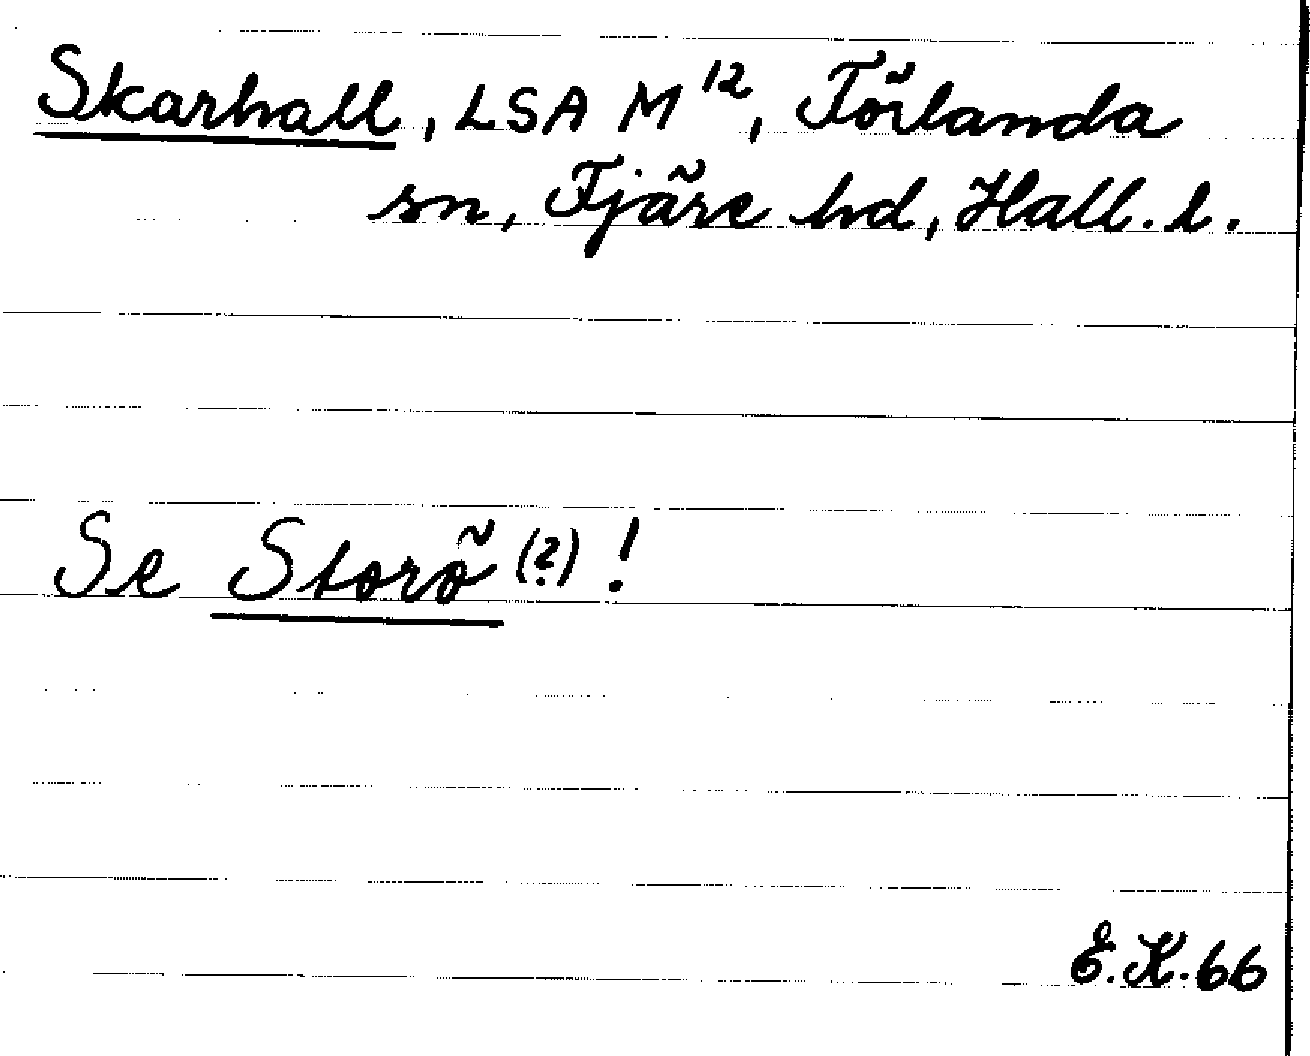 Skarhall, LSA M¹², Förlanda
sn, Fjäre hd, Hall. l.
Se Storö (?) !
E.K. 66